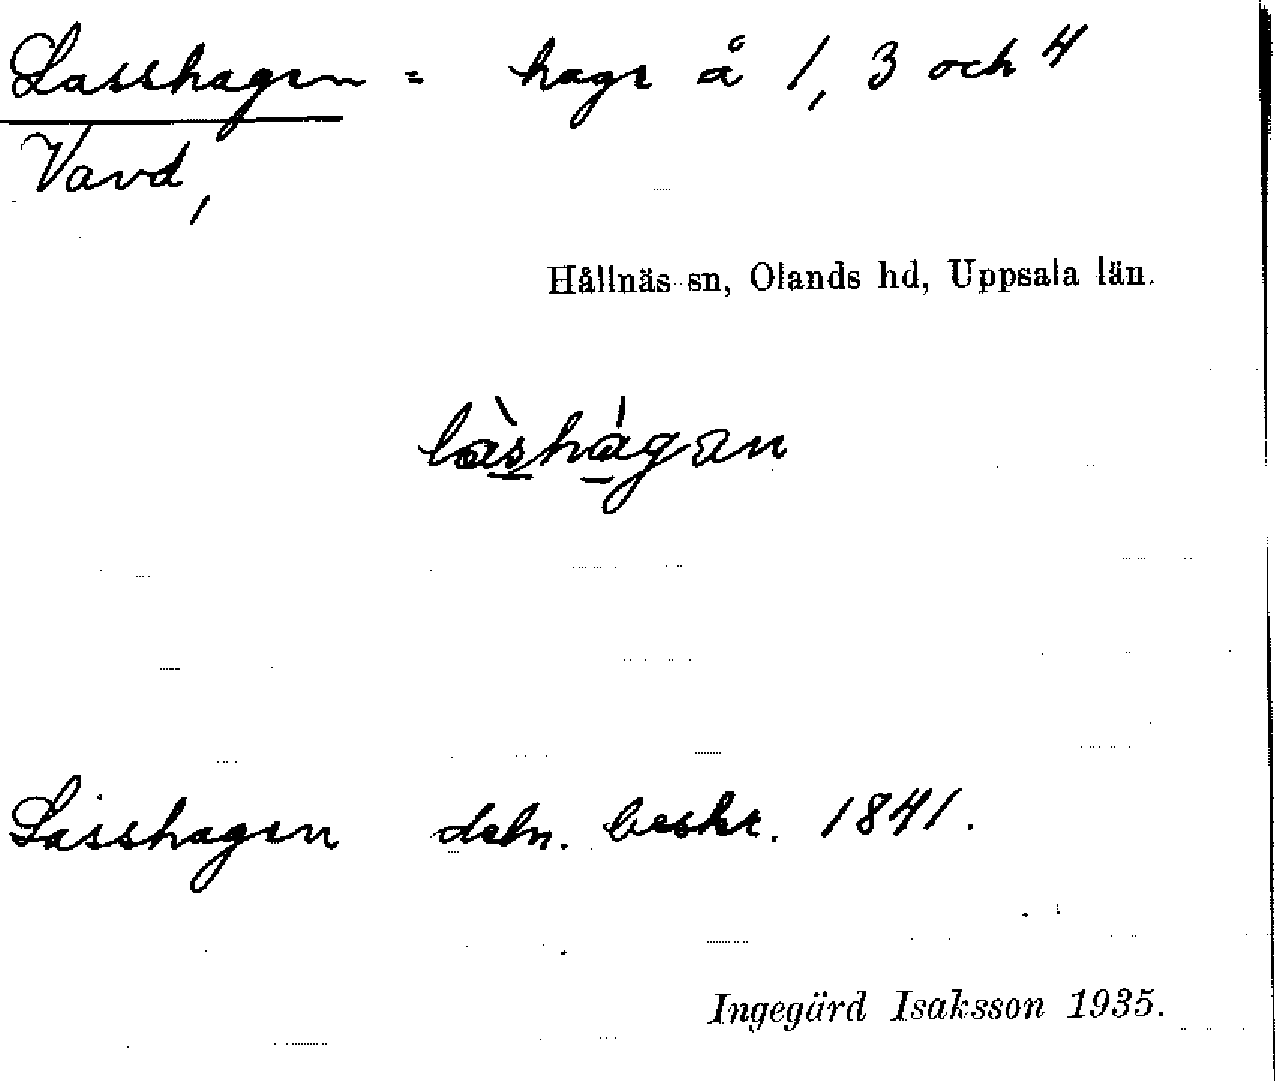 Lasshagen = hage å 1, 3 och 4
Vavd,
Hållnäs sn, Olands hd, Uppsala län.
làshàgan
Lasshagen deln. beskr. 1841.
Ingegärd Isaksson 1935.